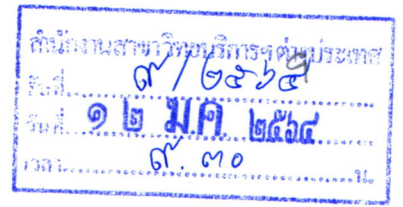 สำนักงานสาขาวิทยบริการฯต่างประเทศ
รับที่ ๙/๒๕๖๔
วันที่ ๑๒ ม.ค. ๒๕๖๔
เวลา ๙.๓๐ น.